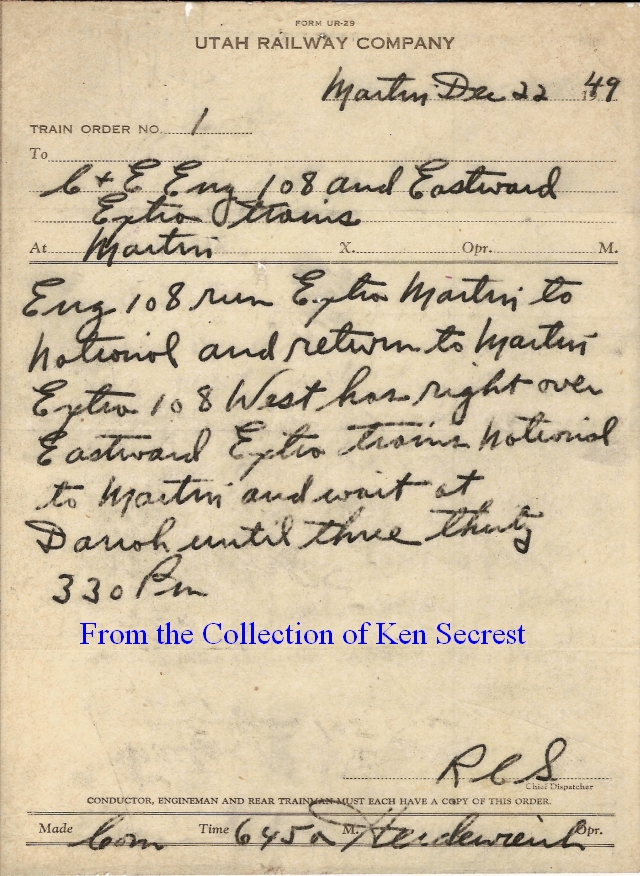 FORM UR-29
UTAH RAILWAY COMPANY
Martin Dec 22 1949
TRAIN ORDER NO. 1
To
C + E Eng 108 and Eastward
Extra trains
At Martin X. Opr. M.
Eng 108 run Extra Martin to
National and return to Martin
Extra 108 West has right over
Eastward Extra trains National
to Martin and wait at
until three thirty
330 Pm
From the Collection of Ken Secrest
R C S
Chief Dispatcher
CONDUCTOR, ENGINEMAN AND REAR TRAINMAN MUST EACH HAVE A COPY OF THIS ORDER.
Made Com Time 645a M. Opr.